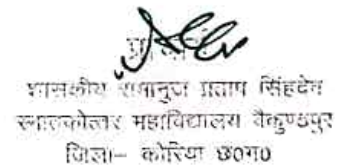 प्राचार्य
शासकीय रामानुज प्रताप सिंहदेव
स्नातकोत्तर महाविद्यालय बैकुण्ठपुर
जिला- कोरिया छ०ग०